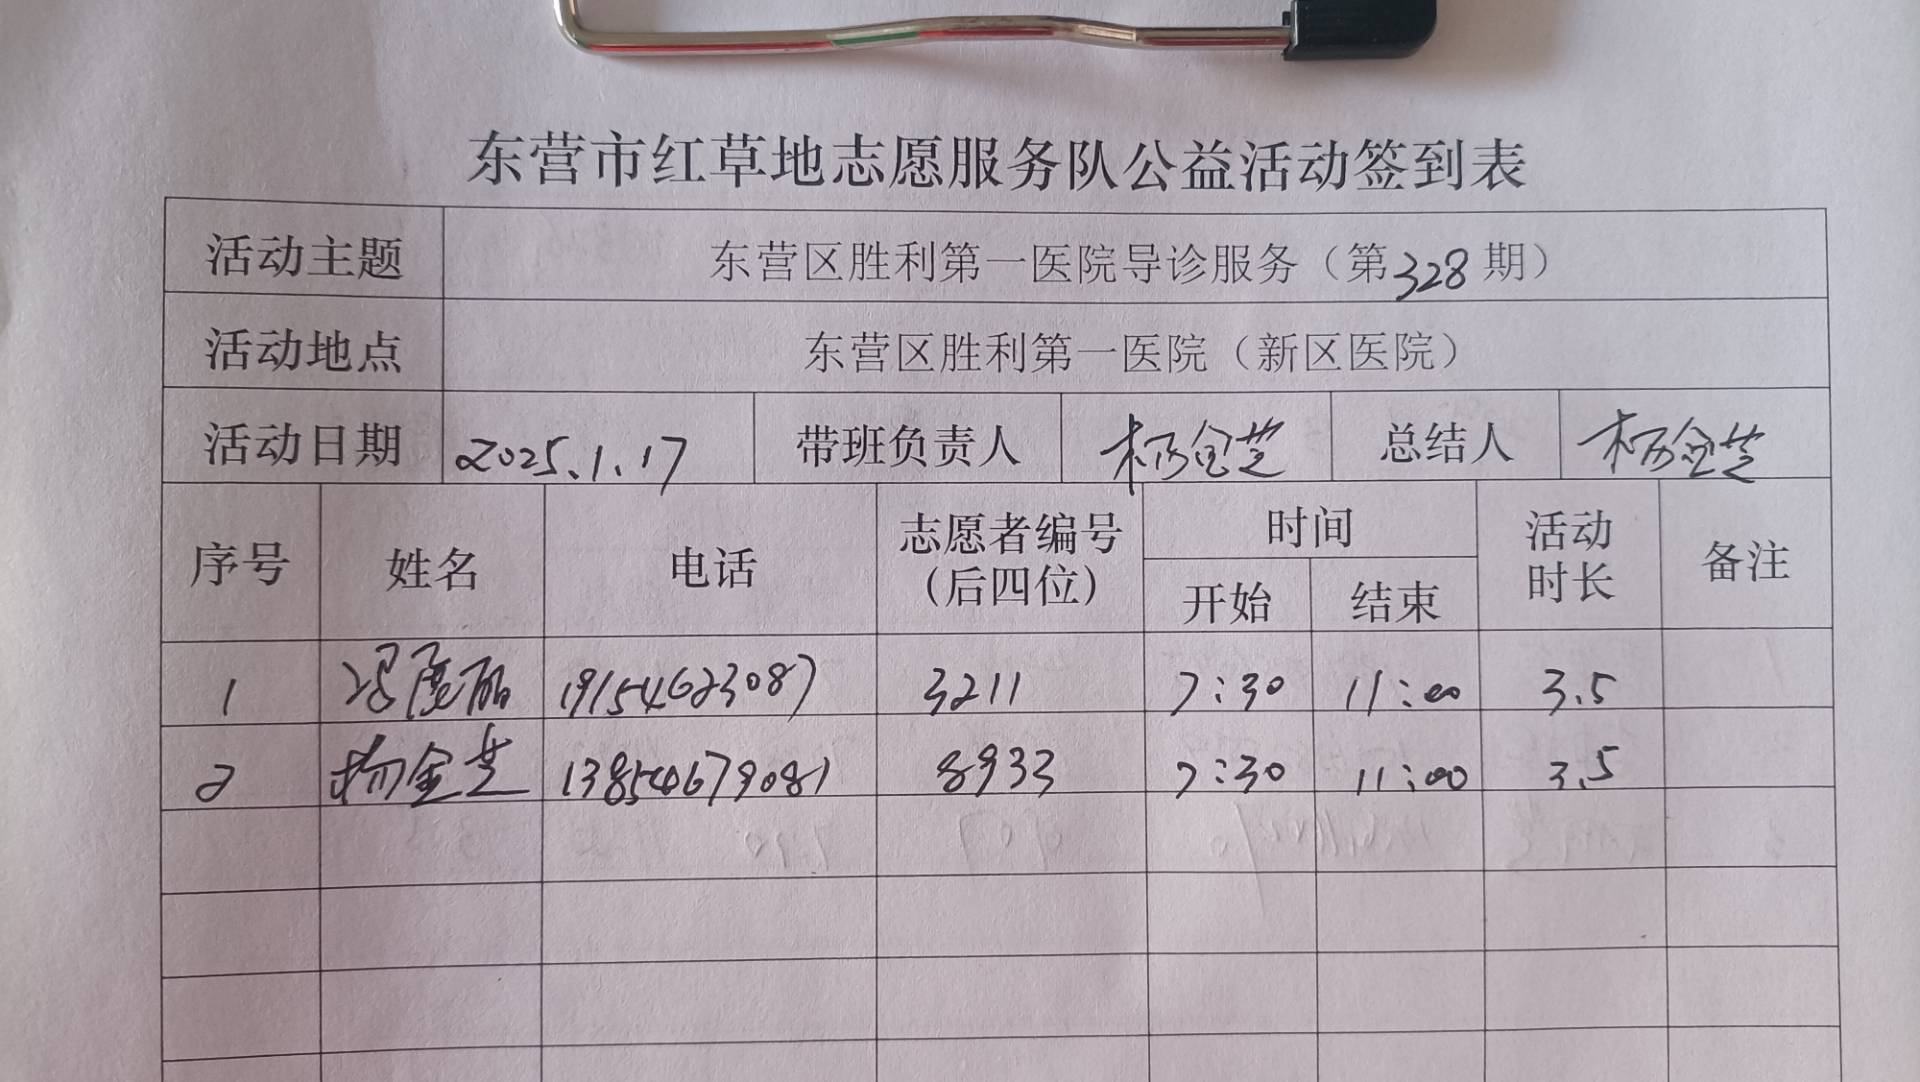 东营市红草地志愿服务队公益活动签到表
活动主题 东营区胜利第一医院导诊服务（第328期）
活动地点 东营区胜利第一医院（新区医院）
活动日期 2025.1.17 带班负责人 杨金芝 总结人 杨金芝
序号 姓名 电话 志愿者编号（后四位） 时间 开始 结束 活动时长 备注
1 冯 丽 19154623087 3211 7:30 11:00 3.5
2 杨金芝 13854679081 8933 7:30 11:00 3.5